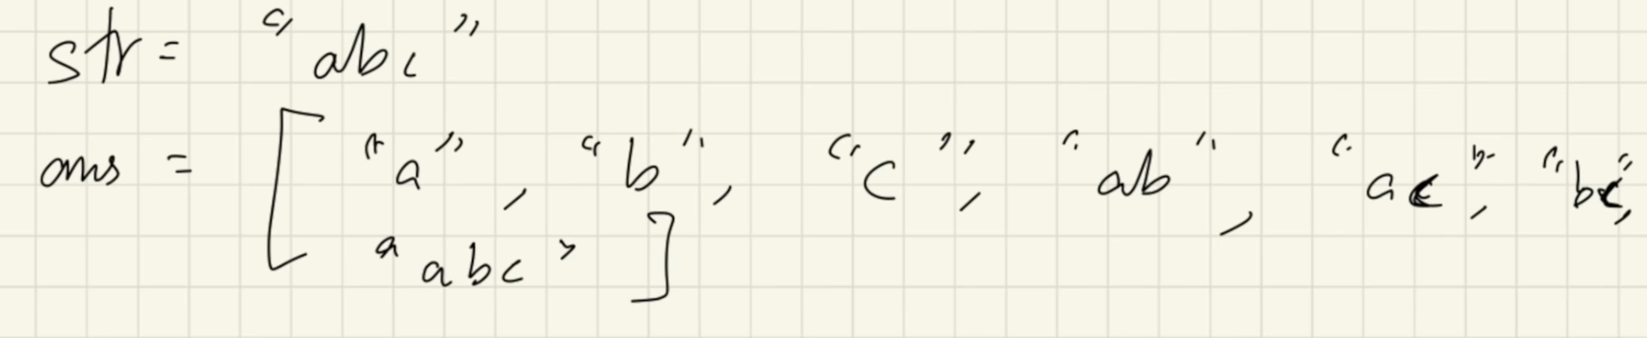 str = "abc"
ans = [ "a", "b", "c", "ab", "ac", "bc",
"abc" ]